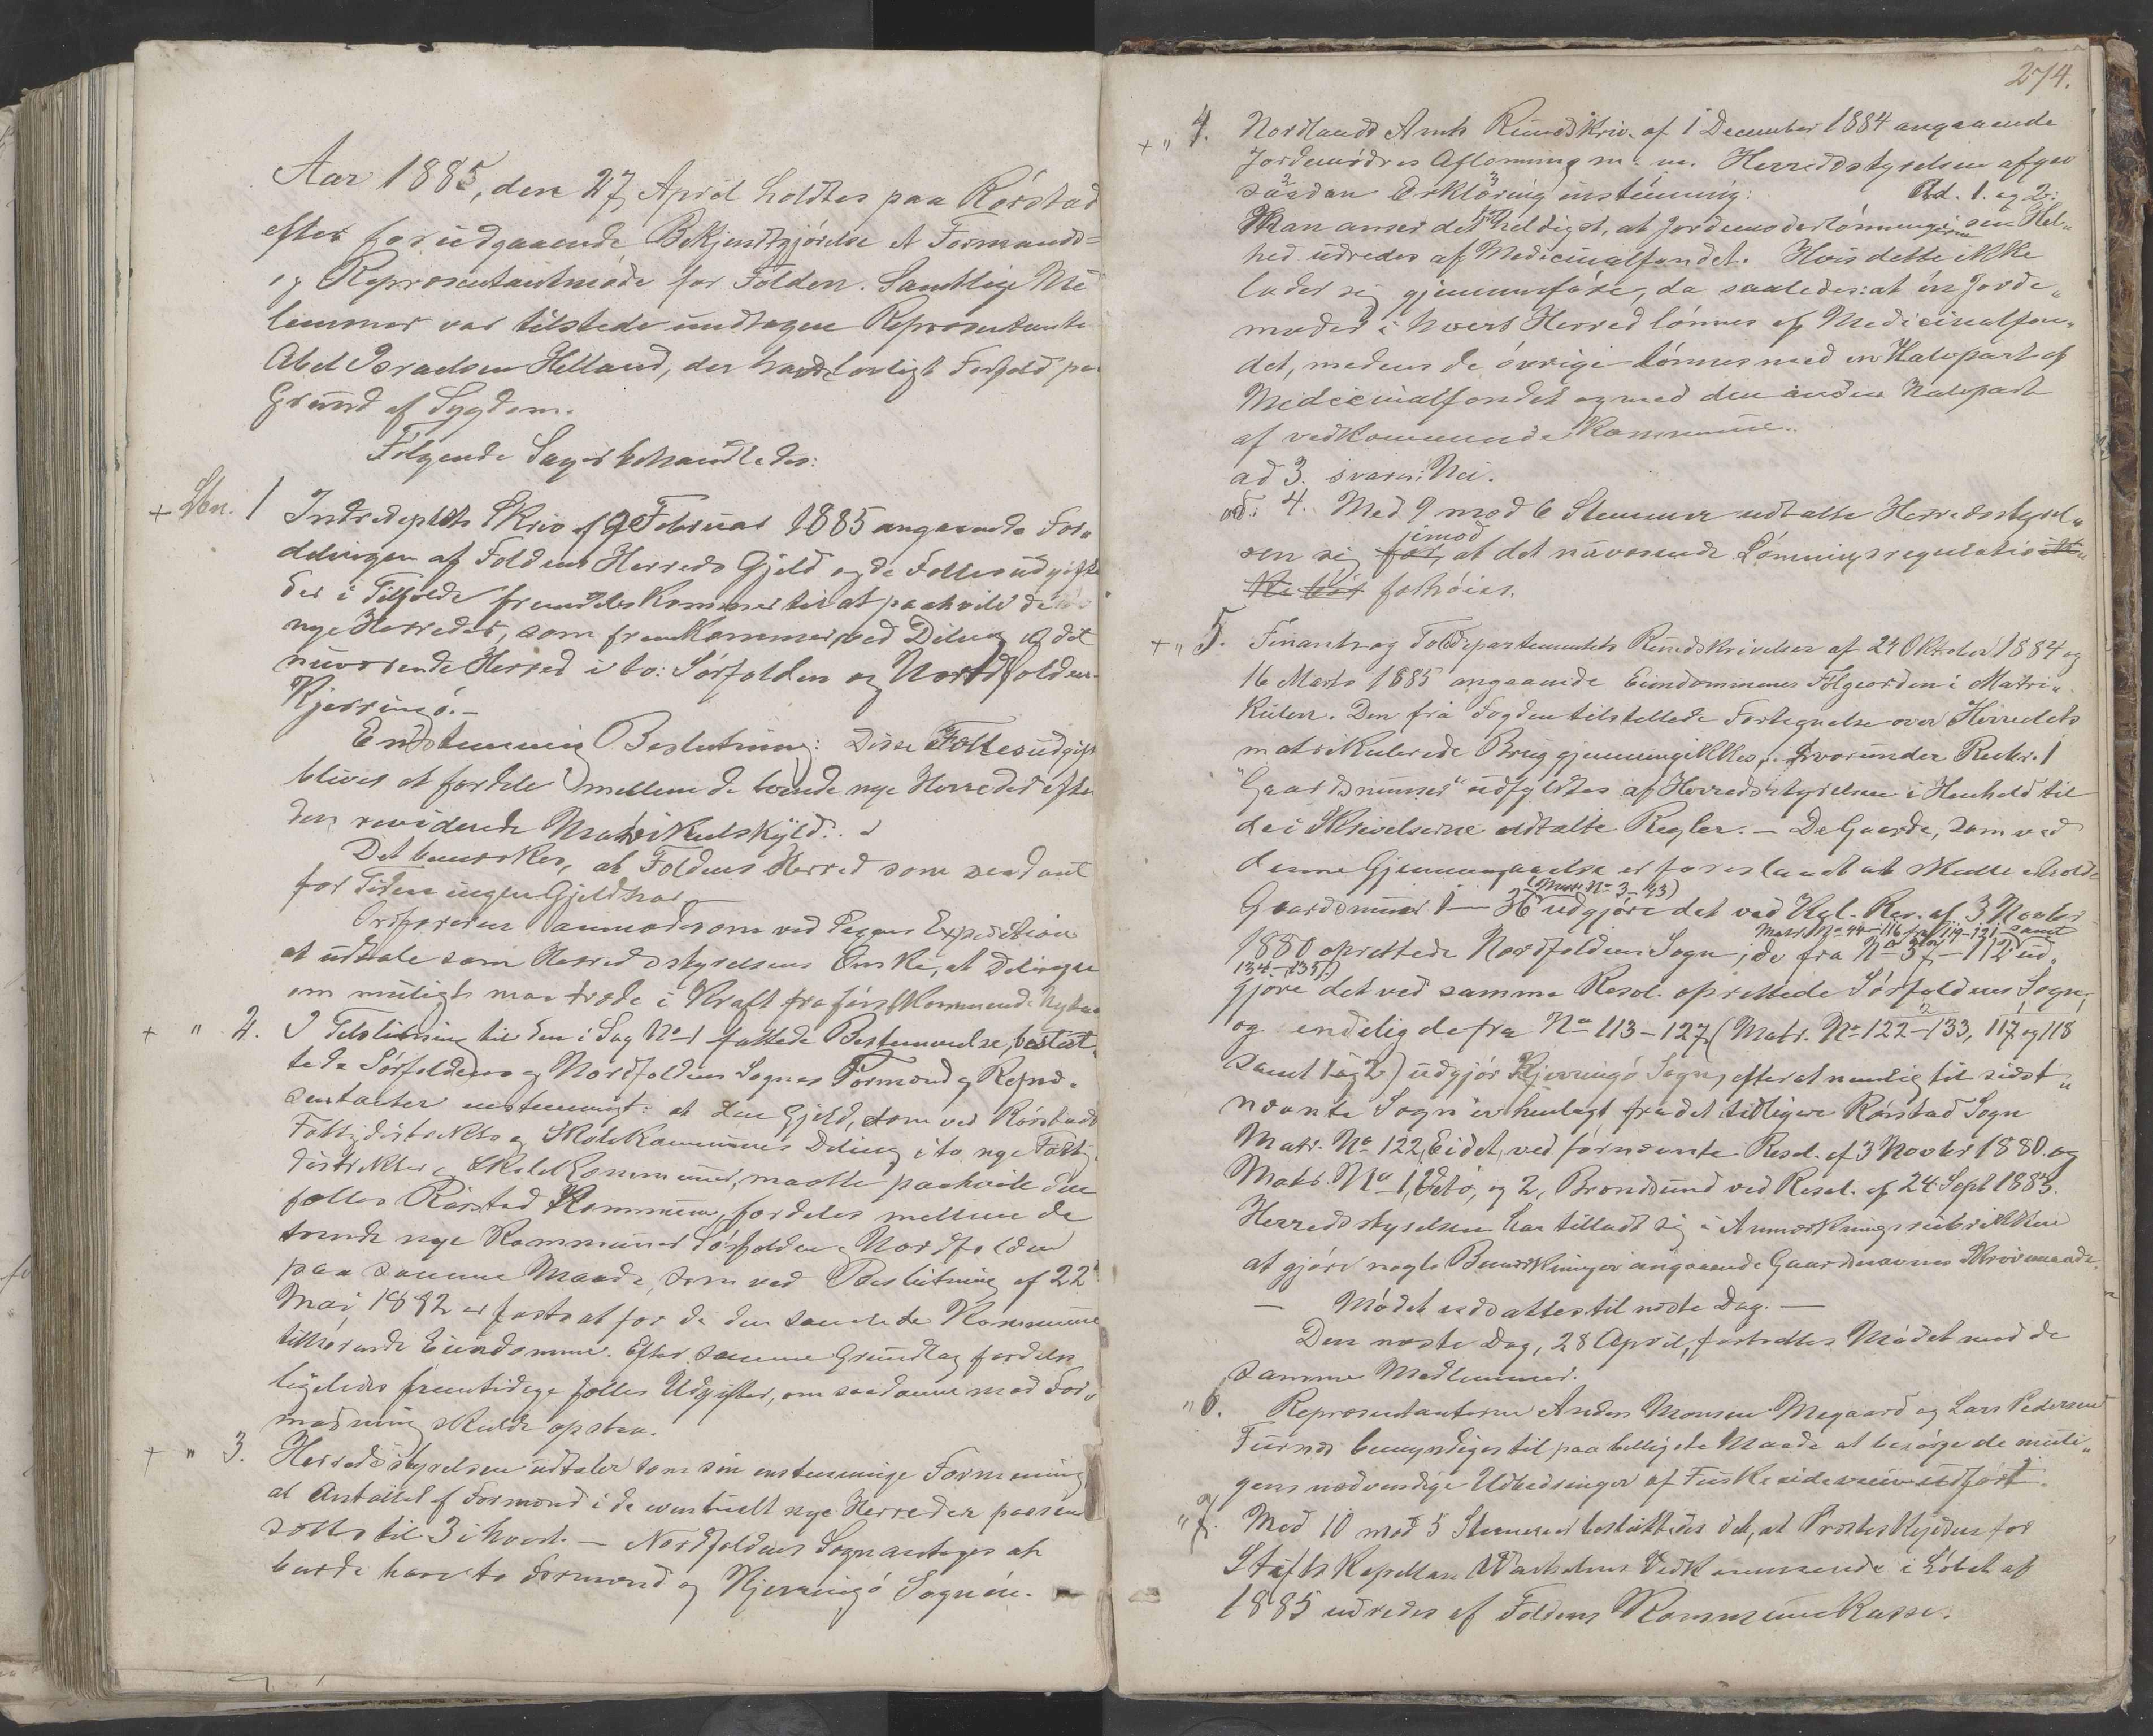 Aar 1885, den 27 April holdtes paa Rørstad
efter forudgaaende Bekjendtgjørelse et Formands=
og Repræsentantmøde for Folden. Samtlige Med
lemmer var tilstede undtagen Repræsentanten
Abel Israelsen Helland, der havde lovligt Forfald paa
Grund af Sygdom.
Følgende Sager behandledes:
+ Sbn. 1 Indredepts Skriv af 9 Februar 1885 angaaende For„
delingen af Foldens Herreds Gjeld og de Fællesudgifter
der i Tilfælde fremdeles kommer til at paahvile de to
nye Herreder, som fremkommer ved Deling af det
nuværende Herred i to: Sørfolden og Nordfolden-
Kjerringø.-
Enstemmig Beslutning: Disse Fællesudgift
bliver at fordele mellem de tvende nye Herreder efter
den reviderede Matrikulskyld.
Det bemærkes, at Foldens Herred som saadant
for Tiden ingen Gjeld har
Ordføreren anmodes om ved Sagens Expedition
at udtale som Herredsstyrelsens Ønske, at Delingen
om muligt maa træde i Kraft fra førstkommende Nytaar
+ " 2. I Tilslutning til den i Sag No 1 fattede Bestemmelse, beslut„
tede Sørfoldens og Nordfoldens Sognes Formænd og Repræ-
sentanter enstemmigt: at den Gjeld, som ved Rørstads
Fattigdistrikts og Skolekommunes Deling i to nye Fattig
distrikter og Skolekommuner, maatte paahvile den
fælles Rørstad Kommune, fordeles mellem de
tvende nye Kommuner Sørfolden og Nordfolden
paa samme Maade, som ved Beslutning af 22de
Mai 1882 er fastsat for de den samlede Kommune
tilhørende Eiendomme. Efter samme Grundlag fordeles
ligeledes fremtidige fælles Udgifter, om saadanne mod For„
modning skulde opstaa.
+ " 3. Herredsstyrelsen udtaler som sin enstemmige Formening
at Antallet af Formænd i de eventuelt nye Herreder passende
sættes til 3 i hvert. — Nordfoldens Sogn antages at
burde have to Formænd og Kjerringø Sogn én.
274.
+ " 4. Nordlands Amts Rundskriv. af 1 December 1884 angaaende
Jordemødres Aflønning m. m. Herredsstyrelsen afgav
saadan Erklæring enstemmig: Ad. 1. og 2:
Man anser det heldigst, at Jordemoderlønningerne i sin Hel„
hed udredes af Medicinalfondet. Hvis dette ikke
lader sig gjennemføre, da saaledes: at én Jorde„
moder i hvert Herred lønnes af Medicinalfon„
det, medens de øvrige lønnes med en Halvpart af
Medicinalfondet og med den anden Halvpart
af vedkommende Kommune.
ad 3. svares: Nei.
ad: 4. Med 9 mod 6 Stemmer udtalte Herredsstyrel„
sen sig for, imod at det nuværende Lønningsregulativ
forhøies.
+ " 5. Finants og Tolddepartementets Rundskrivelser af 24 Oktober 1884 og
16 Marts 1885 angaaende Eiendommenes Følgeorden i Matri„
kulen. Den fra Fogden tilstillede Fortegnelse over Herredets
matrikulerede Brug gjennemgikkes, hvorunder Rubr. 1
"Gaardsnumer" udfyldtes af Herredsstyrelsen i Henhold til
de i Skrivelserne udtalte Regler. — De Gaarde, som ved
denne Gjennemgaaelse er foreslaaet at skulle erholde
Gaardsnumer 1 — 36 (Matr No 3-43) udgjøre det ved Kgl. Res. af 3 Novbr
1880 oprettede Nordfoldens Sogn; de fra No 37 — 112 (Matr. No 44-116 og 119-121 samt
134-135) ud„
gjøre det ved samme Resol. oprettede Sørfoldens Sogn,
og endelig de fra No 113 - 127 (Matr. No 122 - 133, 117 og 118
samt 1 og 2) udgjør Kjerringø Sogn, efterat nemlig til sidst„
nævnte Sogn er henlagt fra det tidligere Rørstad Sogn
Matr. No 122, Eidet, ved førnævnte Resol. af 3 Novbr 1880 og
Matr. No 1, og 2, Brondsund ved Resol. af 24 Sept 1883.
Herredsstyrelsen har tilladt sig i Anmærkningsrubrikken
at gjøre nogle Bemærkninger angaaende Gaardnavnes Skrivemaade.
— Mødet udsattes til næste Dag. —
Den næste Dag, 28 April, fortsattes Mødet med de
samme Medlemmer.
" 6. Repræsentanterne Anders Monsen Megaard og Lars Pedersen
Furnes bemyndiges til paa billigste Maade at besørge de muli„
gens nødvendige Udbedringer af udført.
" 7. Med 10 mod 5 Stemmer besluttedes det, at Prosteskydsen for
Stiftskapellan Vedkommende i Løbet af
1885 udredes af Foldens Kommunekasse.